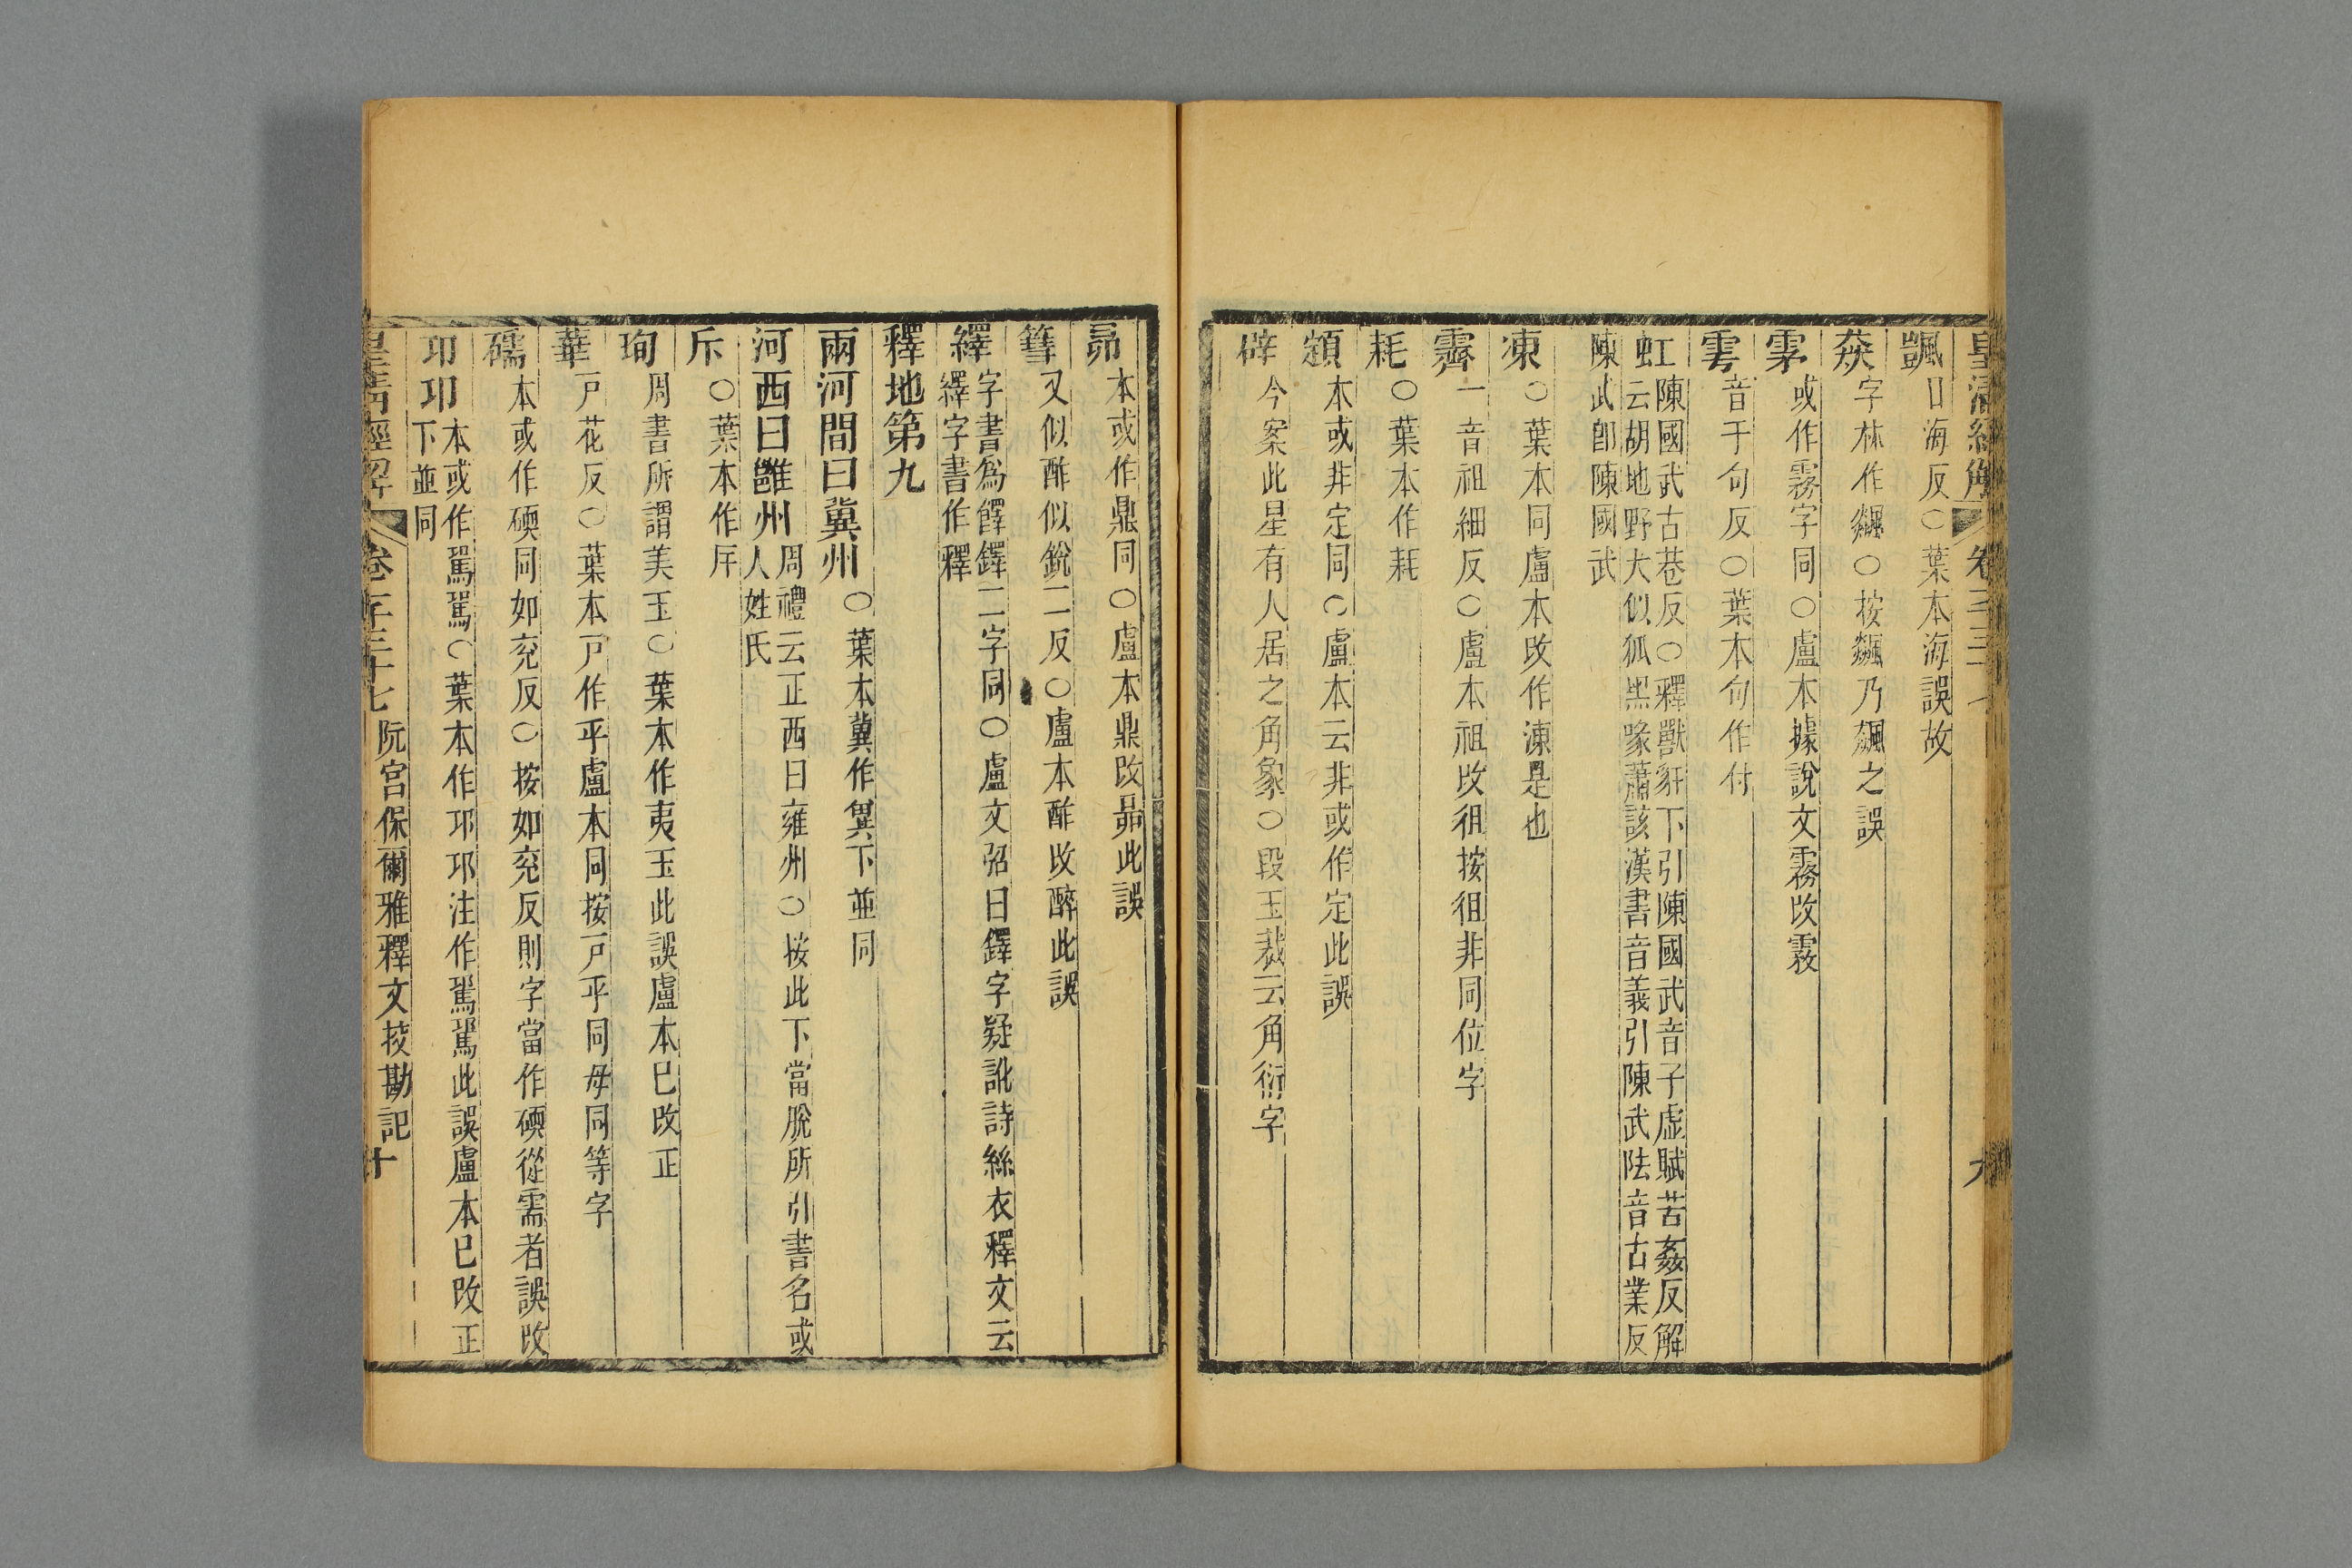 皇清經解 卷三十七 九
颽 口海反○葉本海誤故
猋 字林作飊○按飊乃飆之誤
雺 或作霧字同○盧本據說文霧改霚
雩 音于句反○葉本句作付
虹 陳國武古巷反○釋獸豻下引陳國武音子虛賦苦姦反解
云胡地野犬似狐黑喙蕭該漢書音義引陳武阹音古業反
陳武卽陳國武
凍 ○葉本同盧本改作涷是也
霽 一音祖細反○盧本祖改徂按徂非同位字
耗 ○葉本作秏
䫙 本或非定同○盧本云非或作定此誤
辟 今案此星有人居之角象○段玉裁云角衍字
昴 本或作鼎同○盧本鼎改昴此誤
篲 又似酢似銳二反○盧本酢改醉此誤
繹 字書爲𩜵鐸二字同○盧文弨曰鐸字疑訛詩絲衣釋文云
繹字書作釋
釋地第九
兩河間曰冀州 ○葉本冀作兾下並同
河西曰雝州 周禮云正西曰雍州○按此下當脫所引書名或
人姓氏
斥 ○葉本作庌
珣 周書所謂美玉○葉本作夷玉此誤盧本已改正
華 戸花反○葉本戸作乎盧本同按戸乎同母同等字
礝 本或作碝同如兖反○按如兖反則字當作碝從需者誤改
邛邛 本或作䮪䮪○葉本作邛邛注作䮪䮪此誤盧本已改正
下並同
皇清經解 卷一千三十七 阮宮保爾雅釋文挍勘記 十